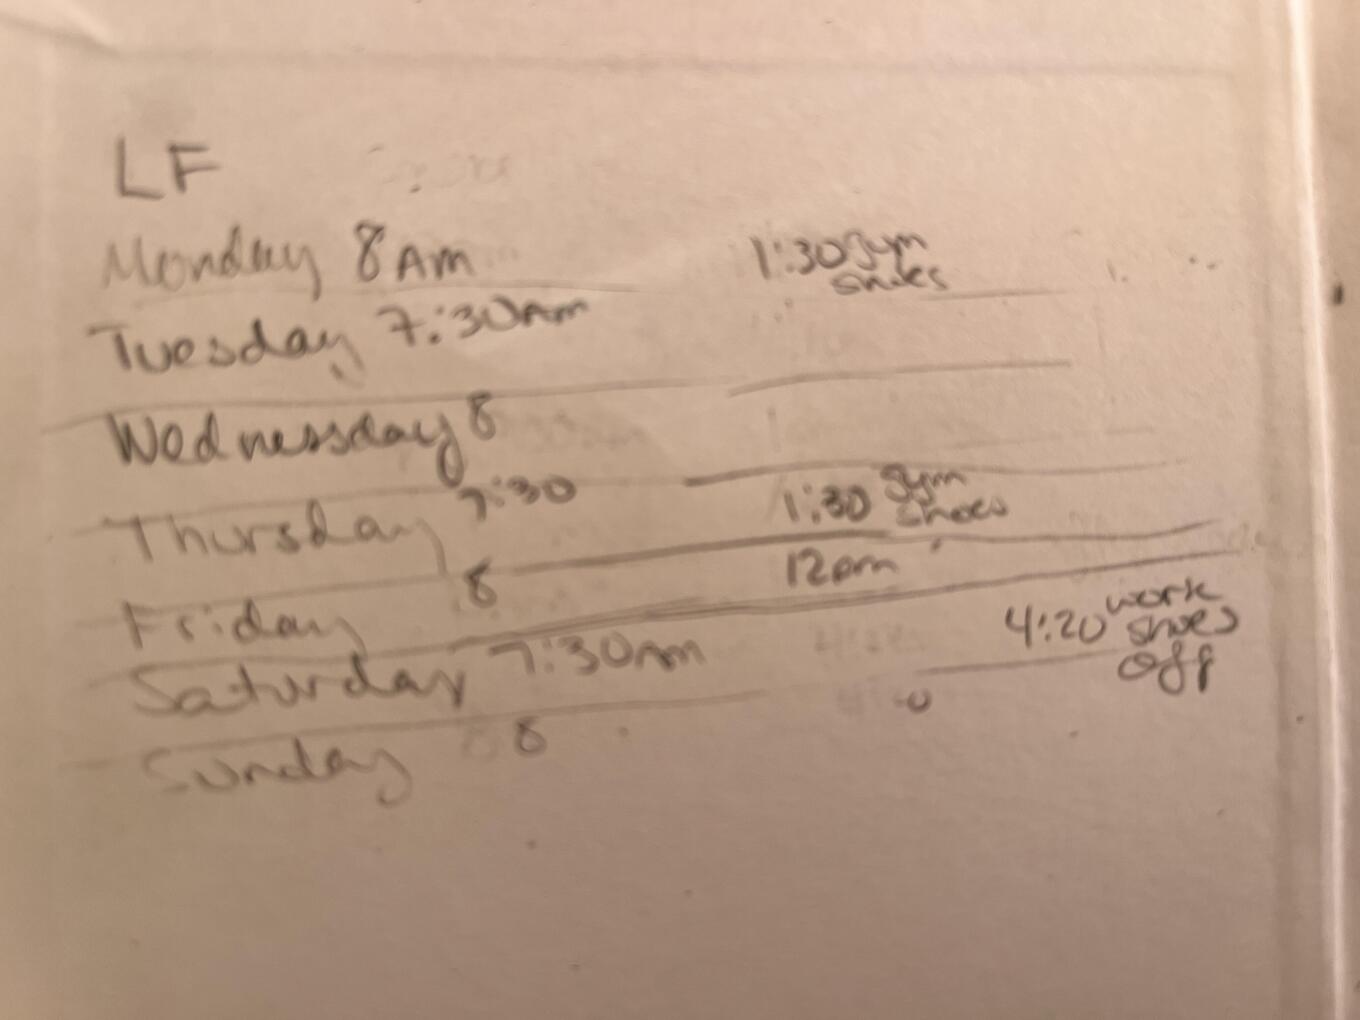 LF
Monday 8 AM 1:30 gym
shoes
Tuesday 7:30 Am
Wednesday 8
Thursday 7:30 1:30 gym
shoes
Friday 8 12pm
Saturday 7:30 Am 4:20 work
shoes
off
Sunday 8